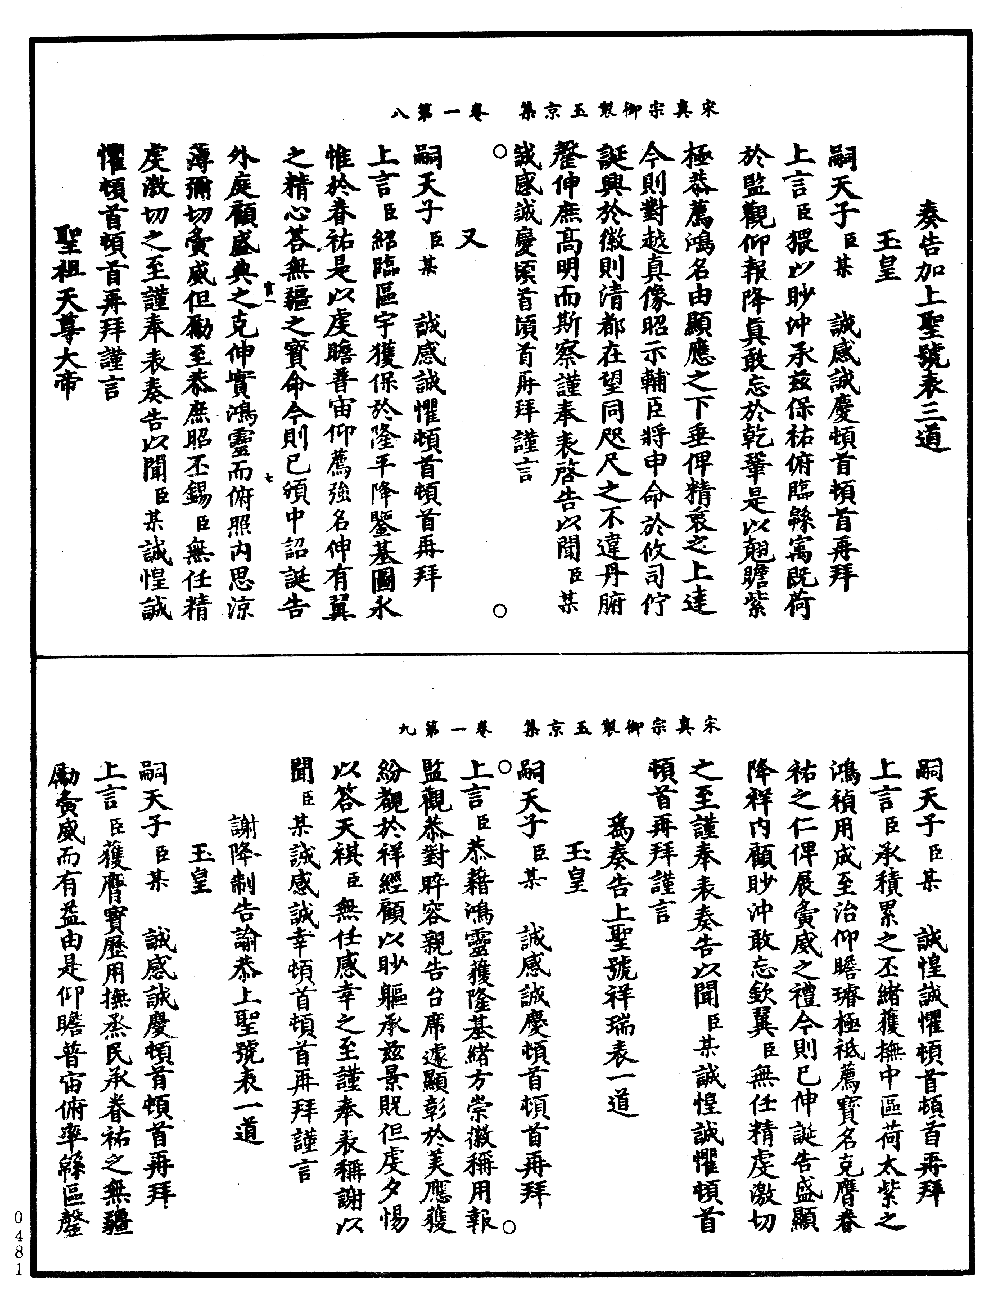 宋真宗御製玉京集　卷一第八
奏告加上聖號表三道
玉皇
嗣天子臣某　誠感誠慶頓首頓首再拜
上言臣猥以眇沖承茲保祐俯臨緜寓既荷
於監觀仰報降真敢忘於乾鞏是以翹瞻紫
極恭薦鴻名由顯應之下垂俾精衷之上達
今則對越真像昭示輔臣將申命於攸司佇
誕興於徽則清都在望同咫尺之不違丹腑
罄伸庶高明而斯察謹奉表啓告以聞臣某
誠感誠慶頓首頓首再拜謹言
又
嗣天子臣某　誠感誠懼頓首頓首再拜
上言臣紹臨區宇獲保於隆平降鑒基圖永
惟於眷祐是以虔瞻普宙仰薦強名伸有翼
之精心荅無疆之寶命今則已頒中詔誕告
官一　七
外庭顧盛典之克伸實鴻靈而俯照內思涼
薄彌切夤威但勵至恭庶昭丕錫臣無任精
虔激切之至謹奉表奏告以聞臣某誠惶誠
懼頓首頓首再拜謹言
聖祖天尊大帝
宋真宗御製玉京集　卷一第九
嗣天子臣某　誠惶誠懼頓首頓首再拜
上言臣承積累之丕緒獲撫中區荷太紫之
鴻禎用成至治仰瞻璿極祗薦寶名克膺眷
祐之仁俾展夤威之禮今則已伸誕告盛顯
降祥內顧眇沖敢忘欽翼臣無任精虔激切
之至謹奉表奏告以聞臣某誠惶誠懼頓首
頓首再拜謹言
為奏告上聖號祥瑞表一道
玉皇
嗣天子臣某　誠感誠慶頓首頓首再拜
上言臣恭藉鴻靈獲隆基緒方崇徽稱用報
監觀恭對睟容親告台席遽顯彰於美應獲
紛觀於祥經顧以眇軀承茲景貺但虔夕惕
以答天祺臣無任感幸之至謹奉表稱謝以
聞臣某誠感誠幸頓首頓首再拜謹言
謝降制告諭恭上聖號表一道
玉皇
嗣天子臣某　誠感誠慶頓首頓首再拜
上言臣獲膺寶歷用撫烝民承眷祐之無疆
勵夤威而有益由是仰瞻普宙俯率緜區罄
0481